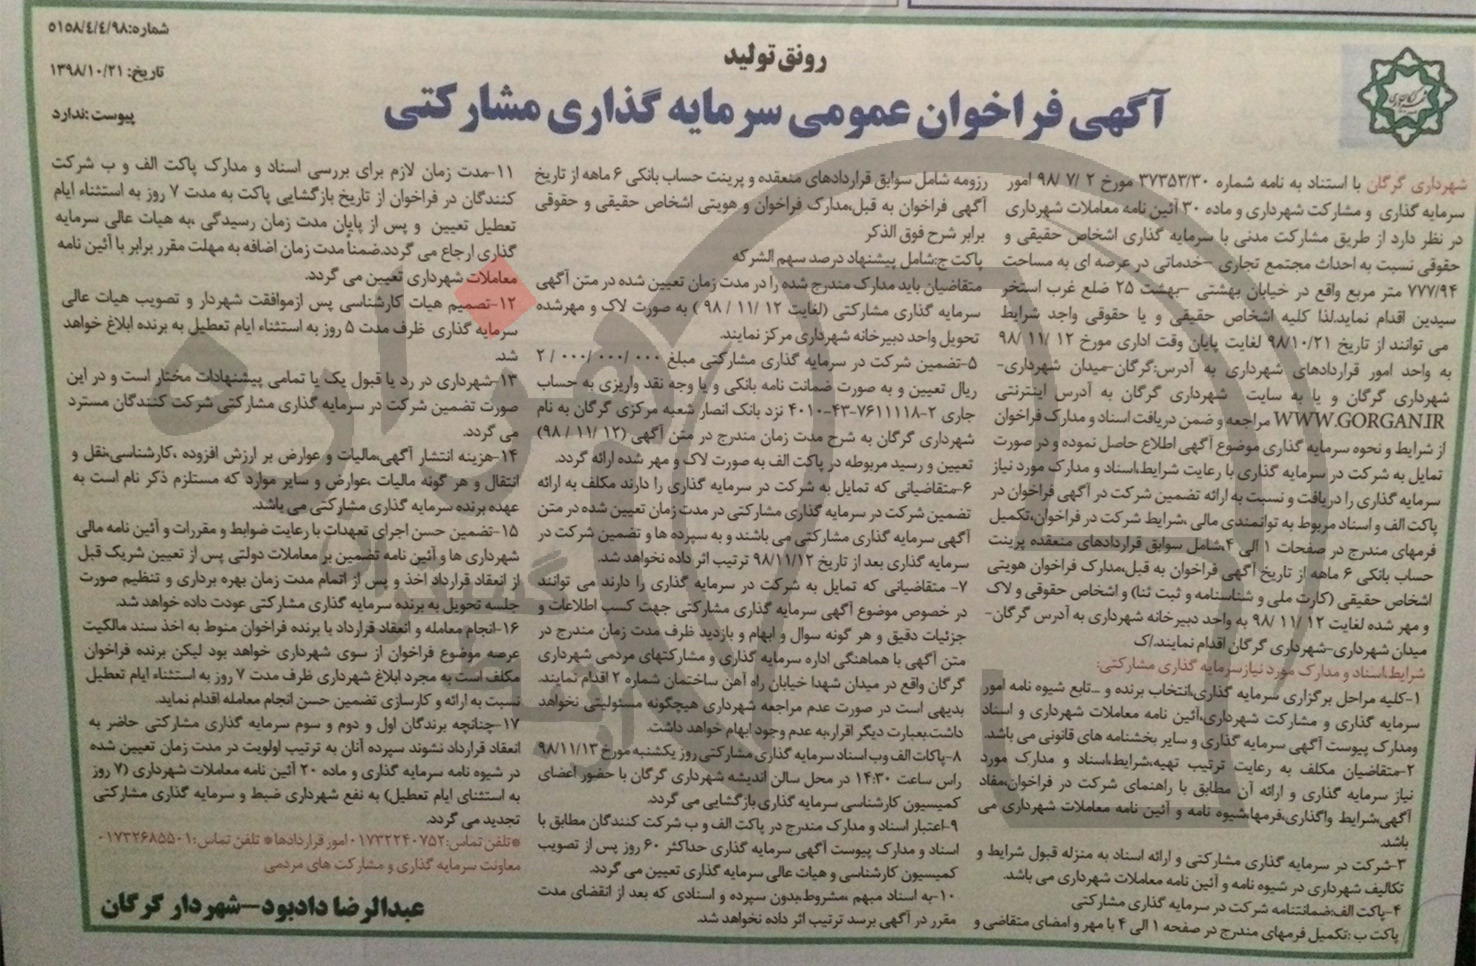 شماره:۵۱۵۸/۴/۴/۹۸
تاریخ: ۱۳۹۸/۱۰/۲۱
پیوست :ندارد
رونق تولید
آگهی فراخوان عمومی سرمایه گذاری مشارکتی
شهرداری گرگان با استناد به نامه شماره ۳۷۳۵۳/۳۰ مورخ ۲ /۷ /۹۸ امور
سرمایه گذاری و مشارکت شهرداری و ماده ۳۰ آئین نامه معاملات شهرداری
در نظر دارد از طریق مشارکت مدنی با سرمایه گذاری اشخاص حقیقی و
حقوقی نسبت به احداث مجتمع تجاری –خدماتی در عرصه ای به مساحت
۷۷۷/۹۴ متر مربع واقع در خیابان بهشتی –بهشت ۲۵ ضلع غرب استخر
سیدین اقدام نماید.لذا کلیه اشخاص حقیقی و یا حقوقی واجد شرایط
می توانند از تاریخ ۹۸/۱۰/۲۱ لغایت پایان وقت اداری مورخ ۱۲ /۱۱ /۹۸
به واحد امور قراردادهای شهرداری به آدرس:گرگان-میدان شهرداری-
شهرداری گرگان و یا به سایت شهرداری گرگان به آدرس اینترنتی
WWW.GORGAN.IR مراجعه و ضمن دریافت اسناد و مدارک فراخوان
از شرایط و نحوه سرمایه گذاری موضوع آگهی اطلاع حاصل نموده و در صورت
تمایل به شرکت در سرمایه گذاری با رعایت شرایط،اسناد و مدارک مورد نیاز
سرمایه گذاری را دریافت و نسبت به ارائه تضمین شرکت در آگهی فراخوان در
پاکت الف و اسناد مربوط به توانمندی مالی ،شرایط شرکت در فراخوان،تکمیل
فرمهای مندرج در صفحات ۱ الی ۴،شامل سوابق قراردادهای منعقده پرینت
حساب بانکی ۶ ماهه از تاریخ آگهی فراخوان به قبل،مدارک فراخوان هویتی
اشخاص حقیقی (کارت ملی و شناسنامه و ثبت ثنا) و اشخاص حقوقی و لاک
و مهر شده لغایت ۱۲ /۱۱ /۹۸ به واحد دبیرخانه شهرداری به آدرس گرگان-
میدان شهرداری-شهرداری گرگان اقدام نمایند./ک
شرایط،اسناد و مدارک مورد نیازسرمایه گذاری مشارکتی:
۱-کلیه مراحل برگزاری سرمایه گذاری،انتخاب برنده و ...تابع شیوه نامه امور
سرمایه گذاری و مشارکت شهرداری،آئین نامه معاملات شهرداری و اسناد
ومدارک پیوست آگهی سرمایه گذاری و سایر بخشنامه های قانونی می باشد.
۲-متقاضیان مکلف به رعایت ترتیب تهیه،شرایط،اسناد و مدارک مورد
نیاز سرمایه گذاری و ارائه آن مطابق با راهنمای شرکت در فراخوان،مفاد
آگهی،شرایط واگذاری،فرمها،شیوه نامه و آئین نامه معاملات شهرداری می
باشد.
۳-شرکت در سرمایه گذاری مشارکتی و ارائه اسناد به منزله قبول شرایط و
تکالیف شهرداری در شیوه نامه و آئین نامه معاملات شهرداری می باشد.
۴-پاکت الف:ضمانتنامه شرکت در سرمایه گذاری مشارکتی
پاکت ب :تکمیل فرمهای مندرج در صفحه ۱ الی ۴ با مهر و امضای متقاضی و
رزومه شامل سوابق قراردادهای منعقده و پرینت حساب بانکی ۶ ماهه از تاریخ
آگهی فراخوان به قبل،مدارک فراخوان و هویتی اشخاص حقیقی و حقوقی
برابر شرح فوق الذکر
پاکت ج:شامل پیشنهاد درصد سهم الشرکه
متقاضیان باید مدارک مندرج شده را در مدت زمان تعیین شده در متن آگهی
سرمایه گذاری مشارکتی (لغایت ۱۲ /۱۱ / ۹۸ ) به صورت لاک و مهرشده
تحویل واحد دبیرخانه شهرداری مرکز نمایند.
۵-تضمین شرکت در سرمایه گذاری مشارکتی مبلغ ۲/۰۰۰/۰۰۰/۰۰۰
ریال تعیین و به صورت ضمانت نامه بانکی و یا وجه نقد واریزی به حساب
جاری ۲-۷۶۱۱۱۱۸-۴۳-۴۰۱۰ نزد بانک انصار شعبه مرکزی گرگان به نام
شهرداری گرگان به شرح مدت زمان مندرج در متن آگهی (۱۲ /۱۱ /۹۸)
تعیین و رسید مربوطه در پاکت الف به صورت لاک و مهر شده ارائه گردد.
۶-متقاضیانی که تمایل به شرکت در سرمایه گذاری را دارند مکلف به ارائه
تضمین شرکت در سرمایه گذاری مشارکتی در مدت زمان تعیین شده در متن
آگهی سرمایه گذاری مشارکتی می باشند و به سپرده ها و تضمین شرکت در
سرمایه گذاری بعد از تاریخ ۹۸/۱۱/۱۲ ترتیب اثر داده نخواهد شد.
۷- متقاضیانی که تمایل به شرکت در سرمایه گذاری را دارند می توانند
در خصوص موضوع آگهی سرمایه گذاری مشارکتی جهت کسب اطلاعات و
جزئیات دقیق و هر گونه سوال و ابهام و بازدید ظرف مدت زمان مندرج در
متن آگهی با هماهنگی اداره سرمایه گذاری و مشارکتهای مردمی شهرداری
گرگان واقع در میدان شهدا خیابان راه آهن ساختمان شماره ۲ اقدام نمایند.
بدیهی است در صورت عدم مراجعه شهرداری هیچگونه مسئولیتی نخواهد
داشت.بعبارت دیگر اقرار،به عدم وجود ابهام خواهد داشت.
۸-پاکات الف وب اسناد سرمایه گذاری مشارکتی روز یکشنبه مورخ ۹۸/۱۱/۱۳
راس ساعت ۱۴:۳۰ در محل سالن اندیشه شهرداری گرگان با حضور اعضای
کمیسیون کارشناسی سرمایه گذاری بازگشایی می گردد.
۹-اعتبار اسناد و مدارک مندرج در پاکت الف و ب شرکت کنندگان مطابق با
اسناد و مدارک پیوست آگهی سرمایه گذاری حداکثر ۶۰ روز پس از تصویب
کمیسیون کارشناسی و هیات عالی سرمایه گذاری تعیین می گردد.
۱۰-به اسناد مبهم ،مشروط،بدون سپرده و اسنادی که بعد از انقضای مدت
مقرر در آگهی برسد ترتیب اثر داده نخواهد شد.
۱۱-مدت زمان لازم برای بررسی اسناد و مدارک پاکت الف و ب شرکت
کنندگان در فراخوان از تاریخ بازگشایی پاکت به مدت ۷ روز به استثناء ایام
تعطیل تعیین و پس از پایان مدت زمان رسیدگی ،به هیات عالی سرمایه
گذاری ارجاع می گردد.ضمناً مدت زمان اضافه به مهلت مقرر برابر با آئین نامه
معاملات شهرداری تعیین می گردد.
۱۲-تصمیم هیات کارشناسی پس ازموافقت شهردار و تصویب هیات عالی
سرمایه گذاری ظرف مدت ۵ روز به استثناء ایام تعطیل به برنده ابلاغ خواهد
شد.
۱۳-شهرداری در رد یا قبول یک یا تمامی پیشنهادات مختار است و در این
صورت تضمین شرکت در سرمایه گذاری مشارکتی شرکت کنندگان مسترد
می گردد.
۱۴-هزینه انتشار آگهی،مالیات و عوارض بر ارزش افزوده ،کارشناسی،نقل و
انتقال و هر گونه مالیات ،عوارض و سایر موارد که مستلزم ذکر نام است به
عهده برنده سرمایه گذاری مشارکتی می باشد.
۱۵-تضمین حسن اجرای تعهدات با رعایت ضوابط و مقررات و آئین نامه مالی
شهرداری ها و آئین نامه تضمین بر معاملات دولتی پس از تعیین شریک قبل
از انعقاد قرارداد اخذ و پس از اتمام مدت زمان بهره برداری و تنظیم صورت
جلسه تحویل به برنده سرمایه گذاری مشارکتی عودت داده خواهد شد.
۱۶-انجام معامله و انعقاد قرارداد با برنده فراخوان منوط به اخذ سند مالکیت
عرصه موضوع فراخوان از سوی شهرداری خواهد بود لیکن برنده فراخوان
مکلف است به مجرد ابلاغ شهرداری ظرف مدت ۷ روز به استثناء ایام تعطیل
نسبت به ارائه و کارسازی تضمین حسن انجام معامله اقدام نماید.
۱۷-چنانچه برندگان اول و دوم و سوم سرمایه گذاری مشارکتی حاضر به
انعقاد قرارداد نشوند سپرده آنان به ترتیب اولویت در مدت زمان تعیین شده
در شیوه نامه سرمایه گذاری و ماده ۲۰ آئین نامه معاملات شهرداری (۷ روز
به استثنای ایام تعطیل) به نفع شهرداری ضبط و سرمایه گذاری مشارکتی
تجدید می گردد.
*تلفن تماس:۰۱۷۳۲۲۴۰۷۵۲ امور قراردادها* تلفن تماس:۰۱۷۳۲۶۸۵۵۰۱
معاونت سرمایه گذاری و مشارکت های مردمی
عبدالرضا دادبود–شهردار گرگان